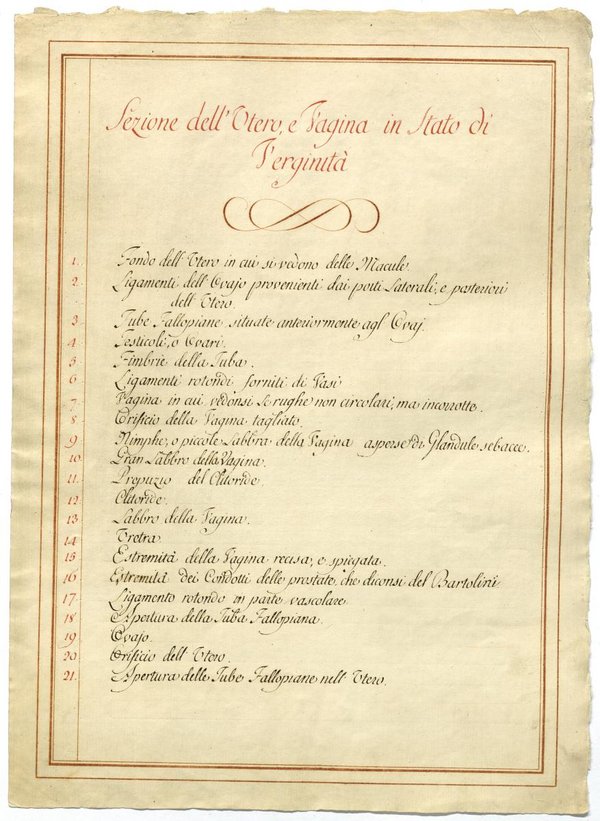 Sezione dell'Utero, e Vagina in Stato di
Verginità
1. Fondo dell'Utero in cui si vedono delle Macule.
2. Ligamenti dell'Ovajo provenienti dai posti Laterali, e posteriori
dell'Utero.
3. Tube Fallopiane situate anteriormente agl'Ovaj.
4. Testicoli, o Ovari.
5. Fimbrie della Tuba.
6. Ligamenti rotondi forniti di Vasi
7. Vagina in cui vedonsi le rughe non circolari; ma incorrotte.
8. Orificio della Vagina tagliato.
9. Nimphe, o piccole Labbra della Vagina asperse di Glandule sebacee.
10. Gran Labbro della Vagina.
11. Prepuzio del Clitoride.
12. Clitoride.
13. Labbro della Vagina.
14. Uretra.
15. Estremità della Vagina recisa, e spiegata.
16. Estremità dei Condotti delle prostate, che diconsi del Bartolini
17. Ligamento rotondo in parte vascolare
18. Apertura della Tuba Fallopiana.
19. Ovajo.
20. Orificio dell'Utero.
21. Apertura delle Tube Fallopiane nell'Utero.